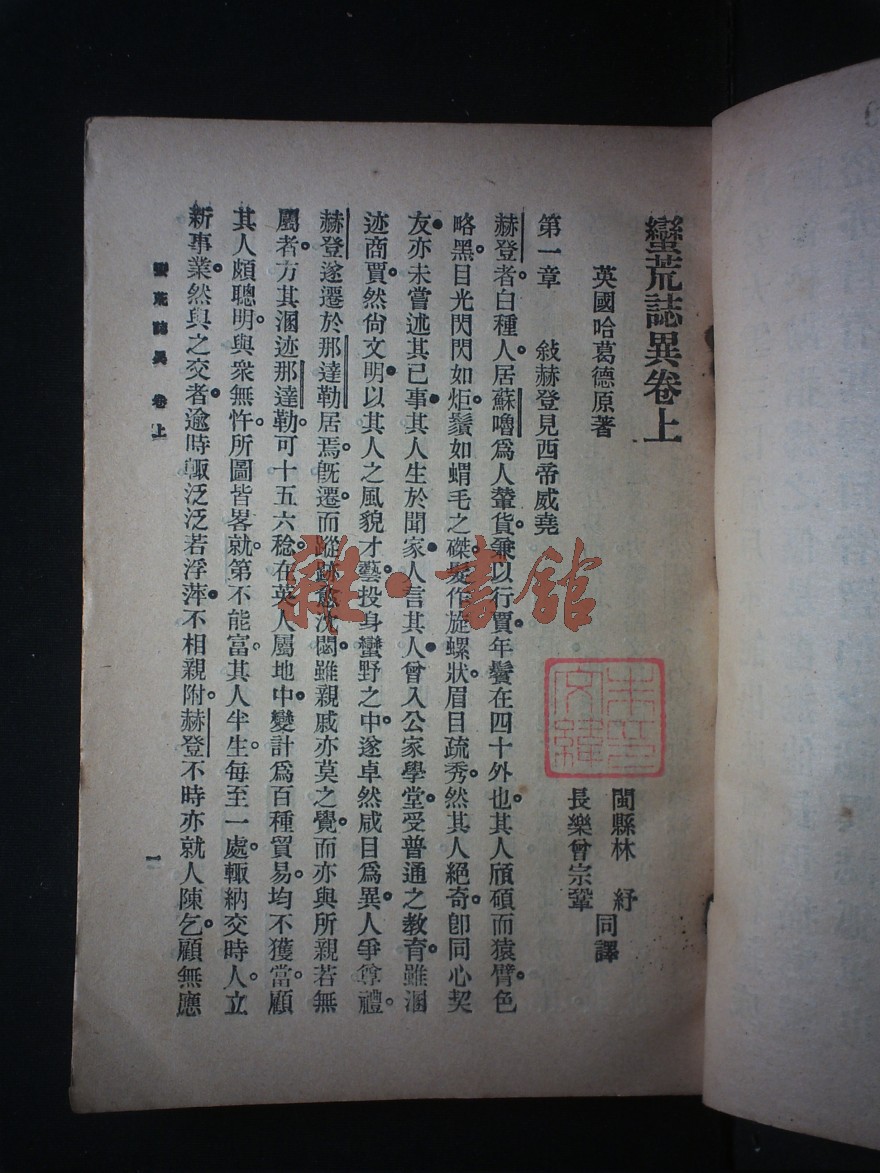 蠻荒誌異卷上
英國哈葛德原著
閩縣林紓
長樂曾宗鞏
同譯
第一章 敍赫登見西帝威堯
赫登者白種人居蘇嚕爲人輦貨兼以行賈年鬢在四十外也。其人頎碩而猿臂。色
略黑。目光閃閃如炬。鬚如蝟毛之磔。髮作旋螺狀。眉目疏秀。然其人絕奇。卽同心契
友。亦未嘗述其已事。其人生於聞家。人言其人曾入公家學堂。受普通之教育。雖溷
迹商賈。然尙文明。以其人之風貌才藝。投身蠻野之中。遂卓然咸目爲異。人爭尊禮。
赫登遂遷於那達勒居焉。旣遷。而蹤跡愈沈閟。雖親戚亦莫之覺。而亦與所親若無
屬者。方其溷迹那達勒。可十五六稔。在英人屬地中。變計爲百種貿易。均不獲當。顧
其人頗聰明。與衆無忤。所圖皆畧就。第不能富。其人半生。每至一處。輒納交時人。立
新事業。然與之交者。逾時輒泛泛若浮萍。不相親附。赫登不時亦就人陳乞。顧無應
蠻荒誌異 卷上
一
雜·書館